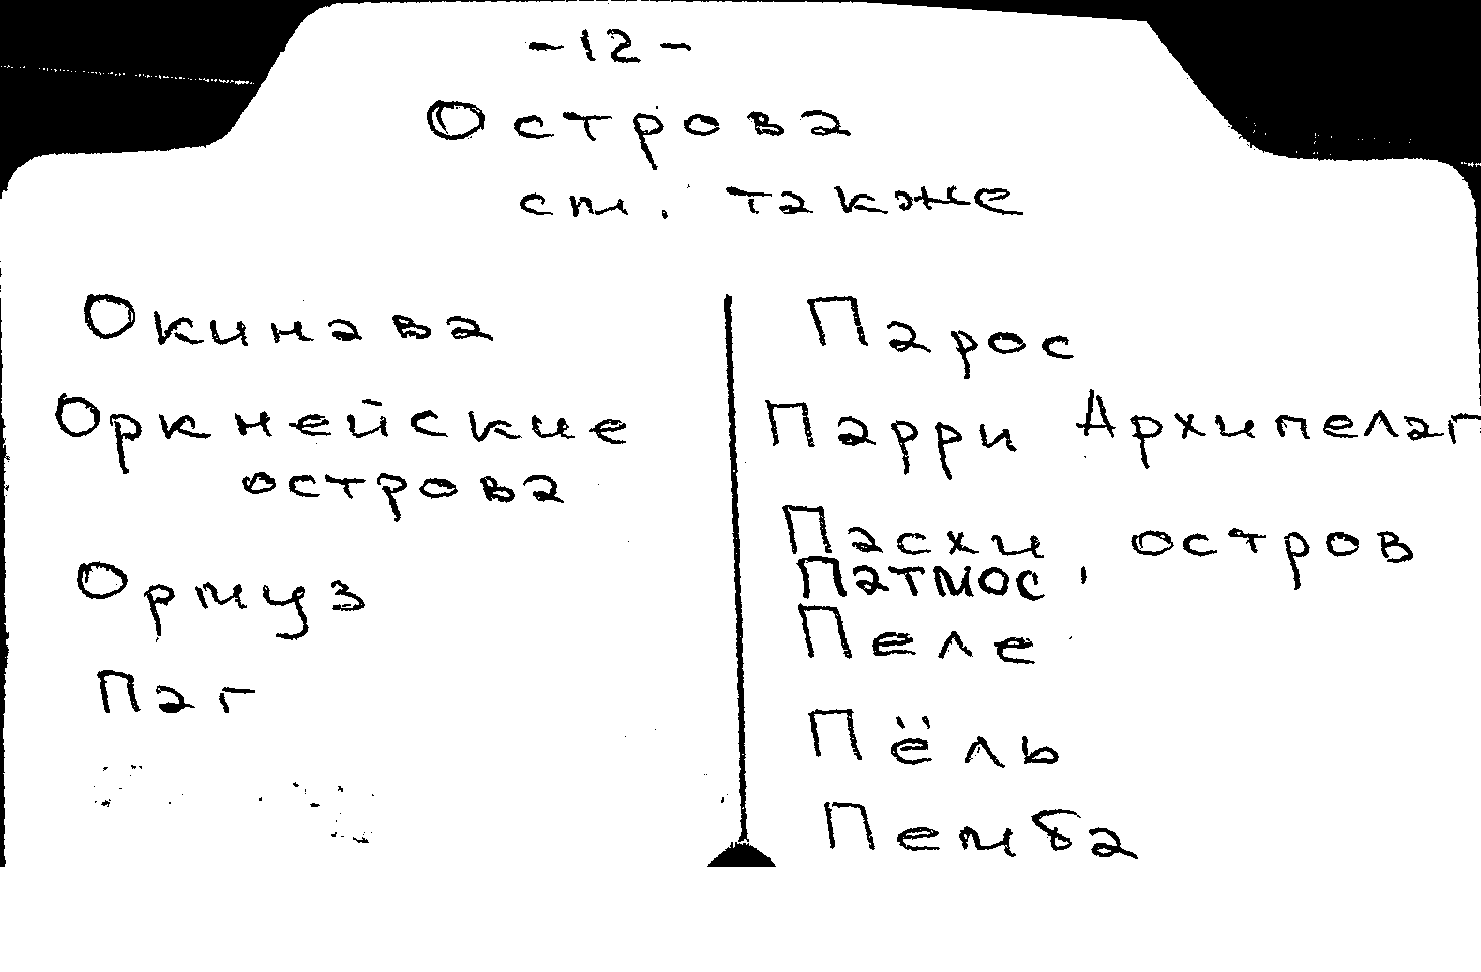 -12-
Острова
см. также
Окинава
Оркнейские
острова
Ормуз
Паг
Парос
Парри Архипелаг
Пасхи, остров
Патмос
Пеле
Пёль
Пемба